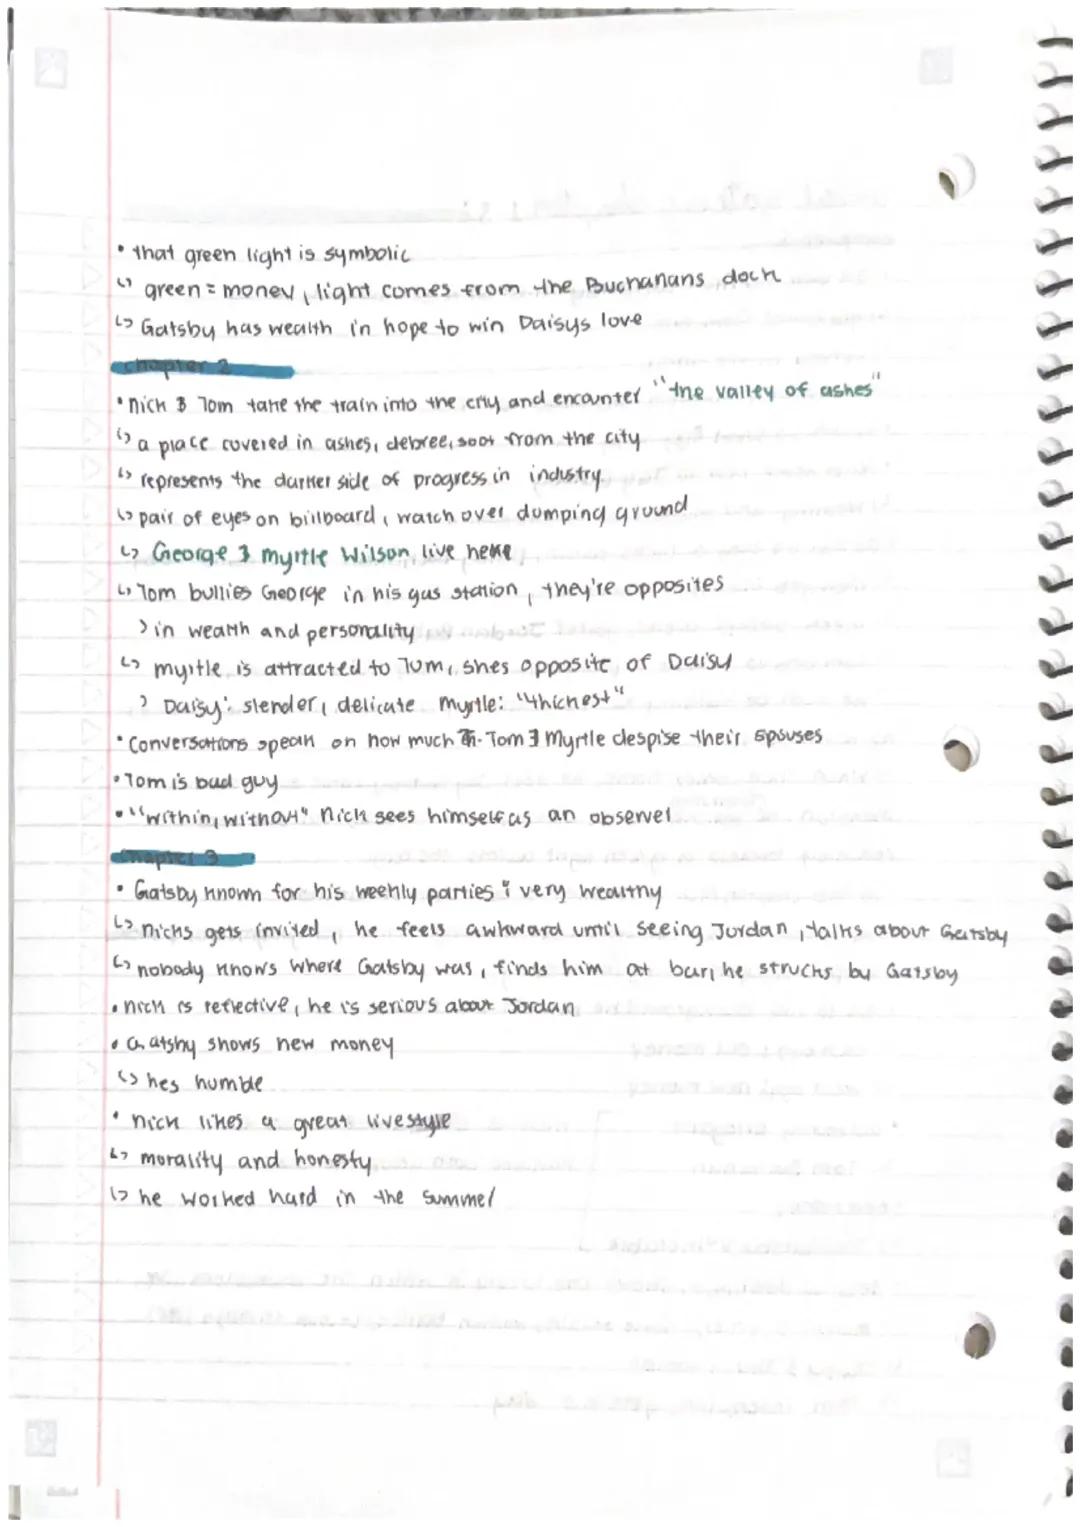 • that green light is symbolic
↳ green = money, light comes from the Buchanans dock
↳ Gatsby has wealth in hope to win Daisys love
chapter 2
• Nick & Tom take the train into the city and encounter "the valley of ashes"
↳ a place covered in ashes, debree, soot from the city
↳ represents the darker side of progress in industry
↳ pair of eyes on billboard, watch over dumping ground
↳ George & myrtle Wilson live here
↳ Tom bullies George in his gas station, they're opposites
> in wealth and personality
↳ myrtle is attracted to Tom, shes opposite of Daisy
> Daisy: slender, delicate myrtle: "thickest"
• Conversations speak on how much Tom & Myrtle despise their spouses
• Tom is bad guy
• "within, without" Nick sees himself as an observer
chapter 3
• Gatsby known for his weekly parties & very wealthy
↳ nicks gets invited, he feels awkward until seeing Jordan, talks about Gatsby
↳ nobody knows where Gatsby was, finds him at bar, he strucks by Gatsby
• nick is reflective, he is serious about Jordan
• Gatsby shows new money
↳ hes humble
• nick likes a great livestyle
↳ morality and honesty
↳ he worked hard in the summer